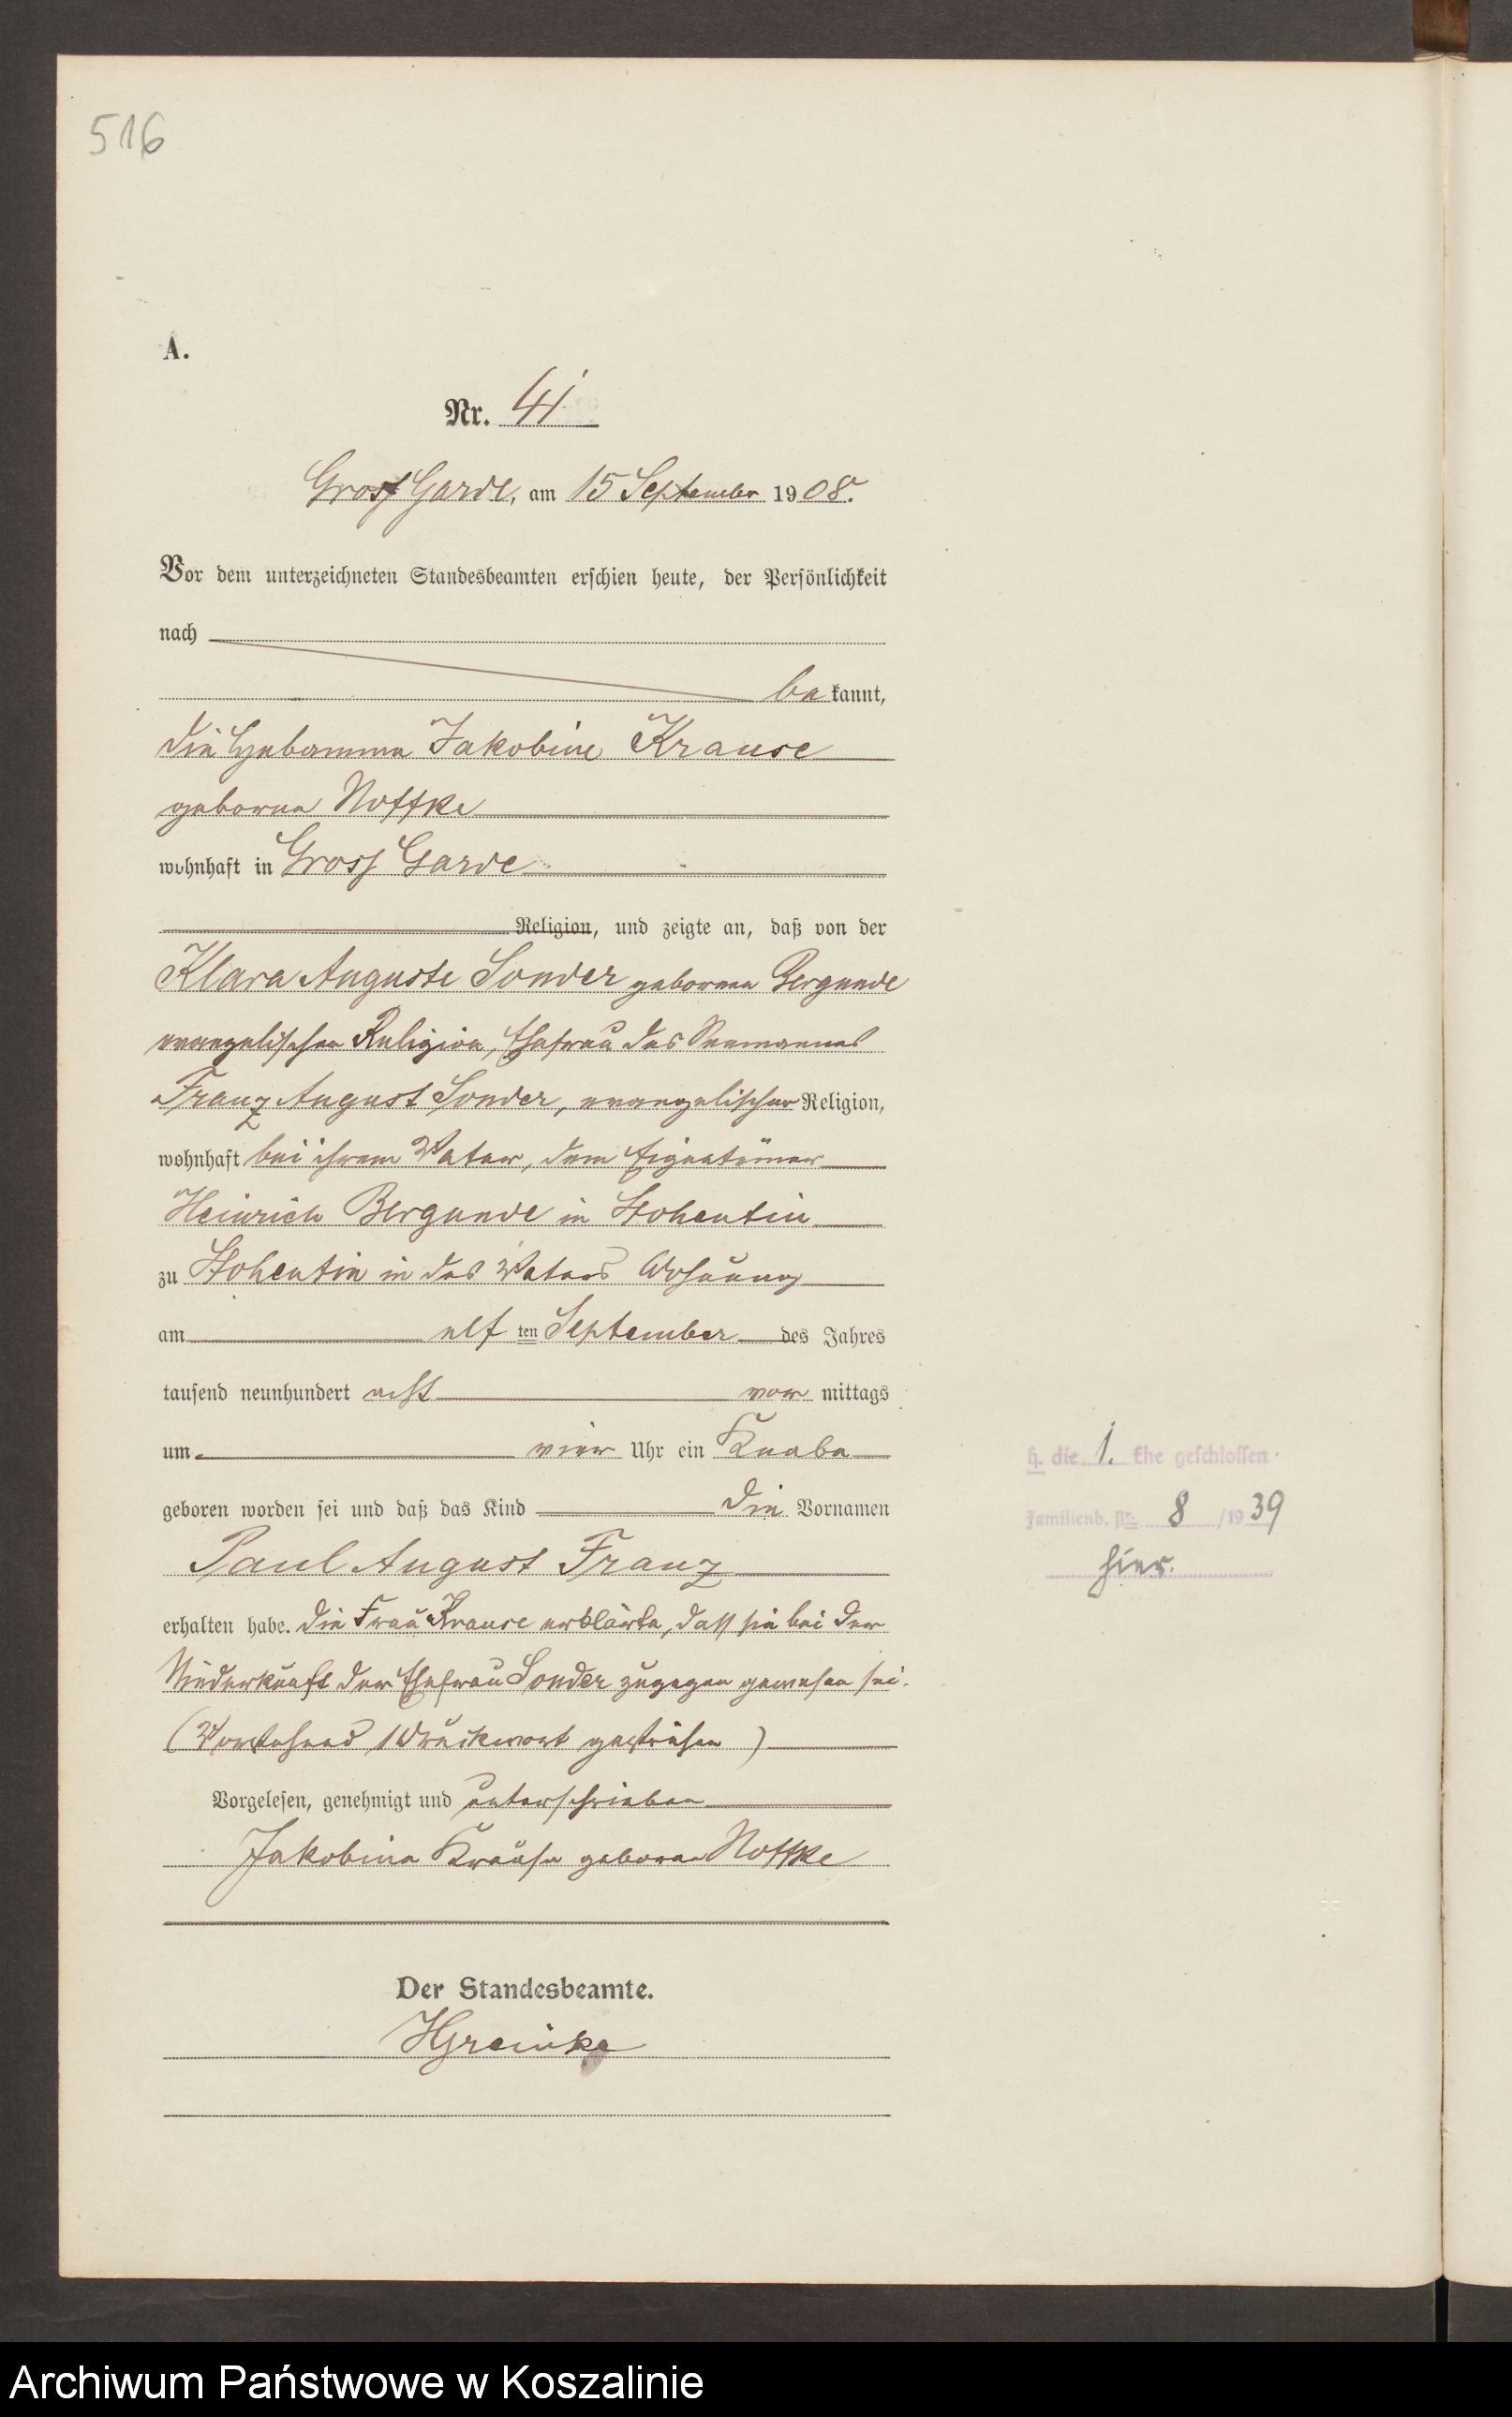 516
A.
Nr. 41
Gross Garde, am 15 September 1908.
Vor dem unterzeichneten Standesbeamten erschien heute, der Persönlichkeit
nach
be kannt,
die Hebamme Jakobine Krause
geborene Noffke
wohnhaft in Gross Garde
Religion, und zeigte an, daß von der
Klara Auguste Sonder geborene Bergunde
evangelischer Religion, Ehefrau des Seemannes
Franz August Sonder, evangelischer Religion,
wohnhaft bei ihrem Vater, dem Eigentümer
Heinrich Bergunde in Stohentin
zu Stohentin in des Vaters Wohnung
am elf ten September des Jahres
tausend neunhundert acht vor mittags
um vier Uhr ein Knabe
geboren worden sei und daß das Kind die Vornamen
Paul August Franz
erhalten habe. Die Frau Krause erklärte, dass sie bei der
Niederkunft der Ehefrau Sonder zugegen gewesen sei.
(Vorstehend 1 Druckwort gestrichen)
Vorgelesen, genehmigt und unterschrieben
Jakobine Krause geborene Noffke
Der Standesbeamte.
HGreinke
h. die 1. Ehe geschlossen.
Familienb. Nr. 8 /1939
hier.
Archiwum Państwowe w Koszalinie